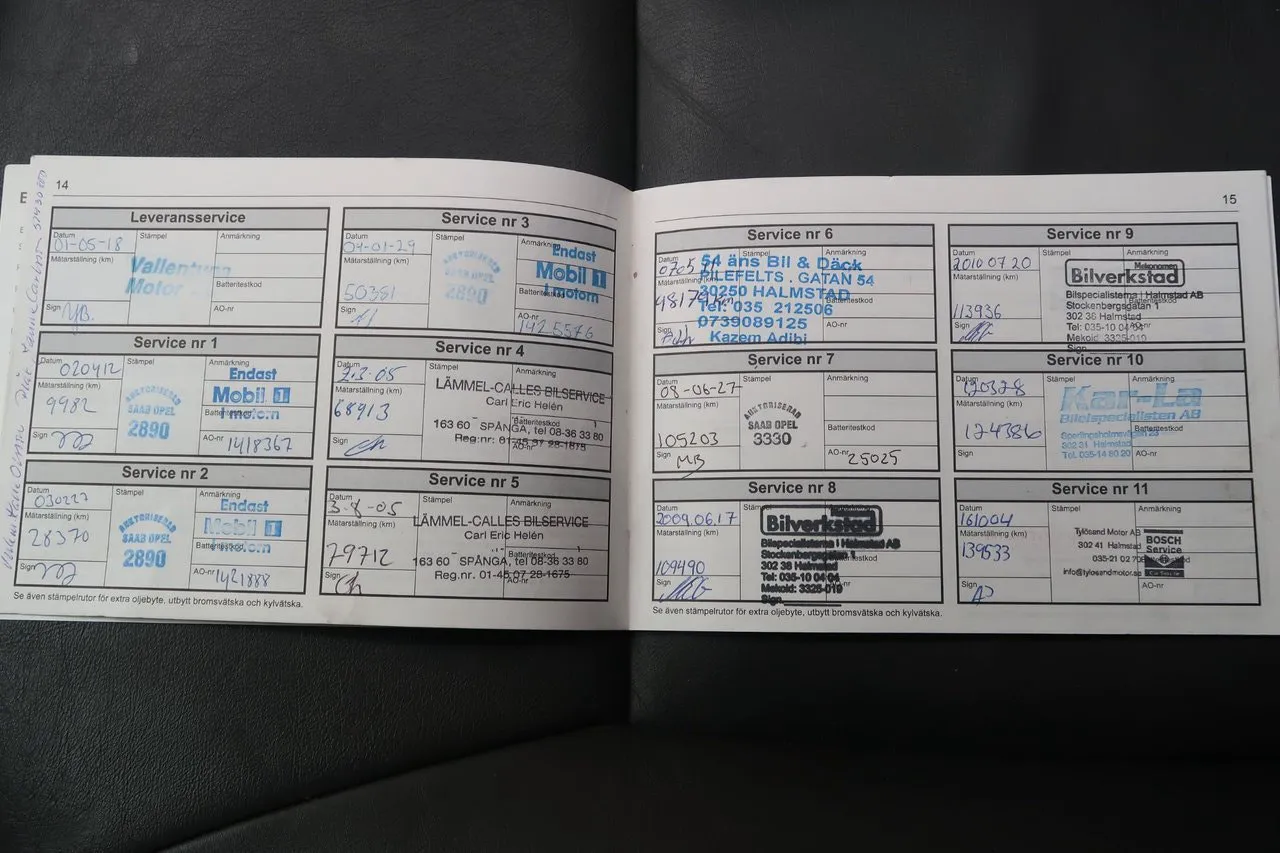 14
Leveransservice
Datum
01-05-18
Stämpel
Anmärkning
Mätarställning (km)
Vallentuna
Motor
Batteritestkod
Sign
AO-nr
Service nr 1
Datum
020412
Stämpel
Anmärkning
Endast
Mätarställning (km)
9982
AUKTORISERAD
SAAB OPEL
2890
Mobil 1
i motorn
Sign
AO-nr
1418367
Service nr 2
Datum
030227
Stämpel
Anmärkning
Endast
Mätarställning (km)
28370
AUKTORISERAD
SAAB OPEL
2890
Mobil 1
i motorn
Sign
AO-nr
1421888
Service nr 3
Datum
04-01-29
Stämpel
Anmärkning
Endast
Mätarställning (km)
50381
AUKTORISERAD
SAAB OPEL
2890
Mobil 1
i motorn
Sign
AO-nr
1425576
Service nr 4
Datum
Stämpel
Anmärkning
Mätarställning (km)
68913
LÄMMEL-CALLES BILSERVICE
Carl Eric Helén
Batteritestkod
163 60 SPÅNGA, tel 08-36 33 80
Reg.nr: 01-45 07 28-1675
Sign
AO-nr
Service nr 5
Datum
3-8-05
Stämpel
Anmärkning
Mätarställning (km)
79712
LÄMMEL-CALLES BILSERVICE
Carl Eric Helén
Batteritestkod
163 60 SPÅNGA, tel 08-36 33 80
Reg.nr. 01-45 07 28-1675
Sign
AO-nr
Se även stämpelrutor för extra oljebyte, utbytt bromsvätska och kylvätska.
15
Service nr 6
Datum
Stämpel
Anmärkning
54 äns Bil & Däck
Mätarställning (km)
PILEFELTS . GATAN 54
30250 HALMSTAD
Tel: 035 212506
0739089125
Kazem Adibi
Sign
AO-nr
Service nr 7
Datum
08-06-27
Stämpel
Anmärkning
Mätarställning (km)
105203
AUKTORISERAD
SAAB OPEL
3330
Batteritestkod
Sign
MB
AO-nr
25025
Service nr 8
Datum
2009.06.17
Stämpel
Anmärkning
Mätarställning (km)
109490
Bilverkstad
Bilspecialisterna i Halmstad AB
Stockenbergsgatan 1
302 36 Halmstad
Tel: 035-10 04 04
Mekoid: 3325-019
Sign
Sign
AO-nr
Service nr 9
Datum
2010 07 20
Stämpel
Anmärkning
Mätarställning (km)
113936
Mekonomen
Bilverkstad
Bilspecialisterna i Halmstad AB
Stockenbergsgatan 1
302 36 Halmstad
Tel: 035-10 04 04
Mekoid: 3325-019
Sign
Sign
Service nr 10
Datum
120328
Stämpel
Anmärkning
Mätarställning (km)
124386
Kar-La
Bilelspecialisten AB
Sperlingsholmsvägen
302 31 Halmstad
Tel. 035-14 80 20
Batteritestkod
Sign
AO-nr
Service nr 11
Datum
161004
Stämpel
Anmärkning
Mätarställning (km)
139533
Tylösand Motor AB
302 41 Halmstad
info@tylosandmotor.se
BOSCH
Service
Sign
AO-nr
Se även stämpelrutor för extra oljebyte, utbytt bromsvätska och kylvätska.